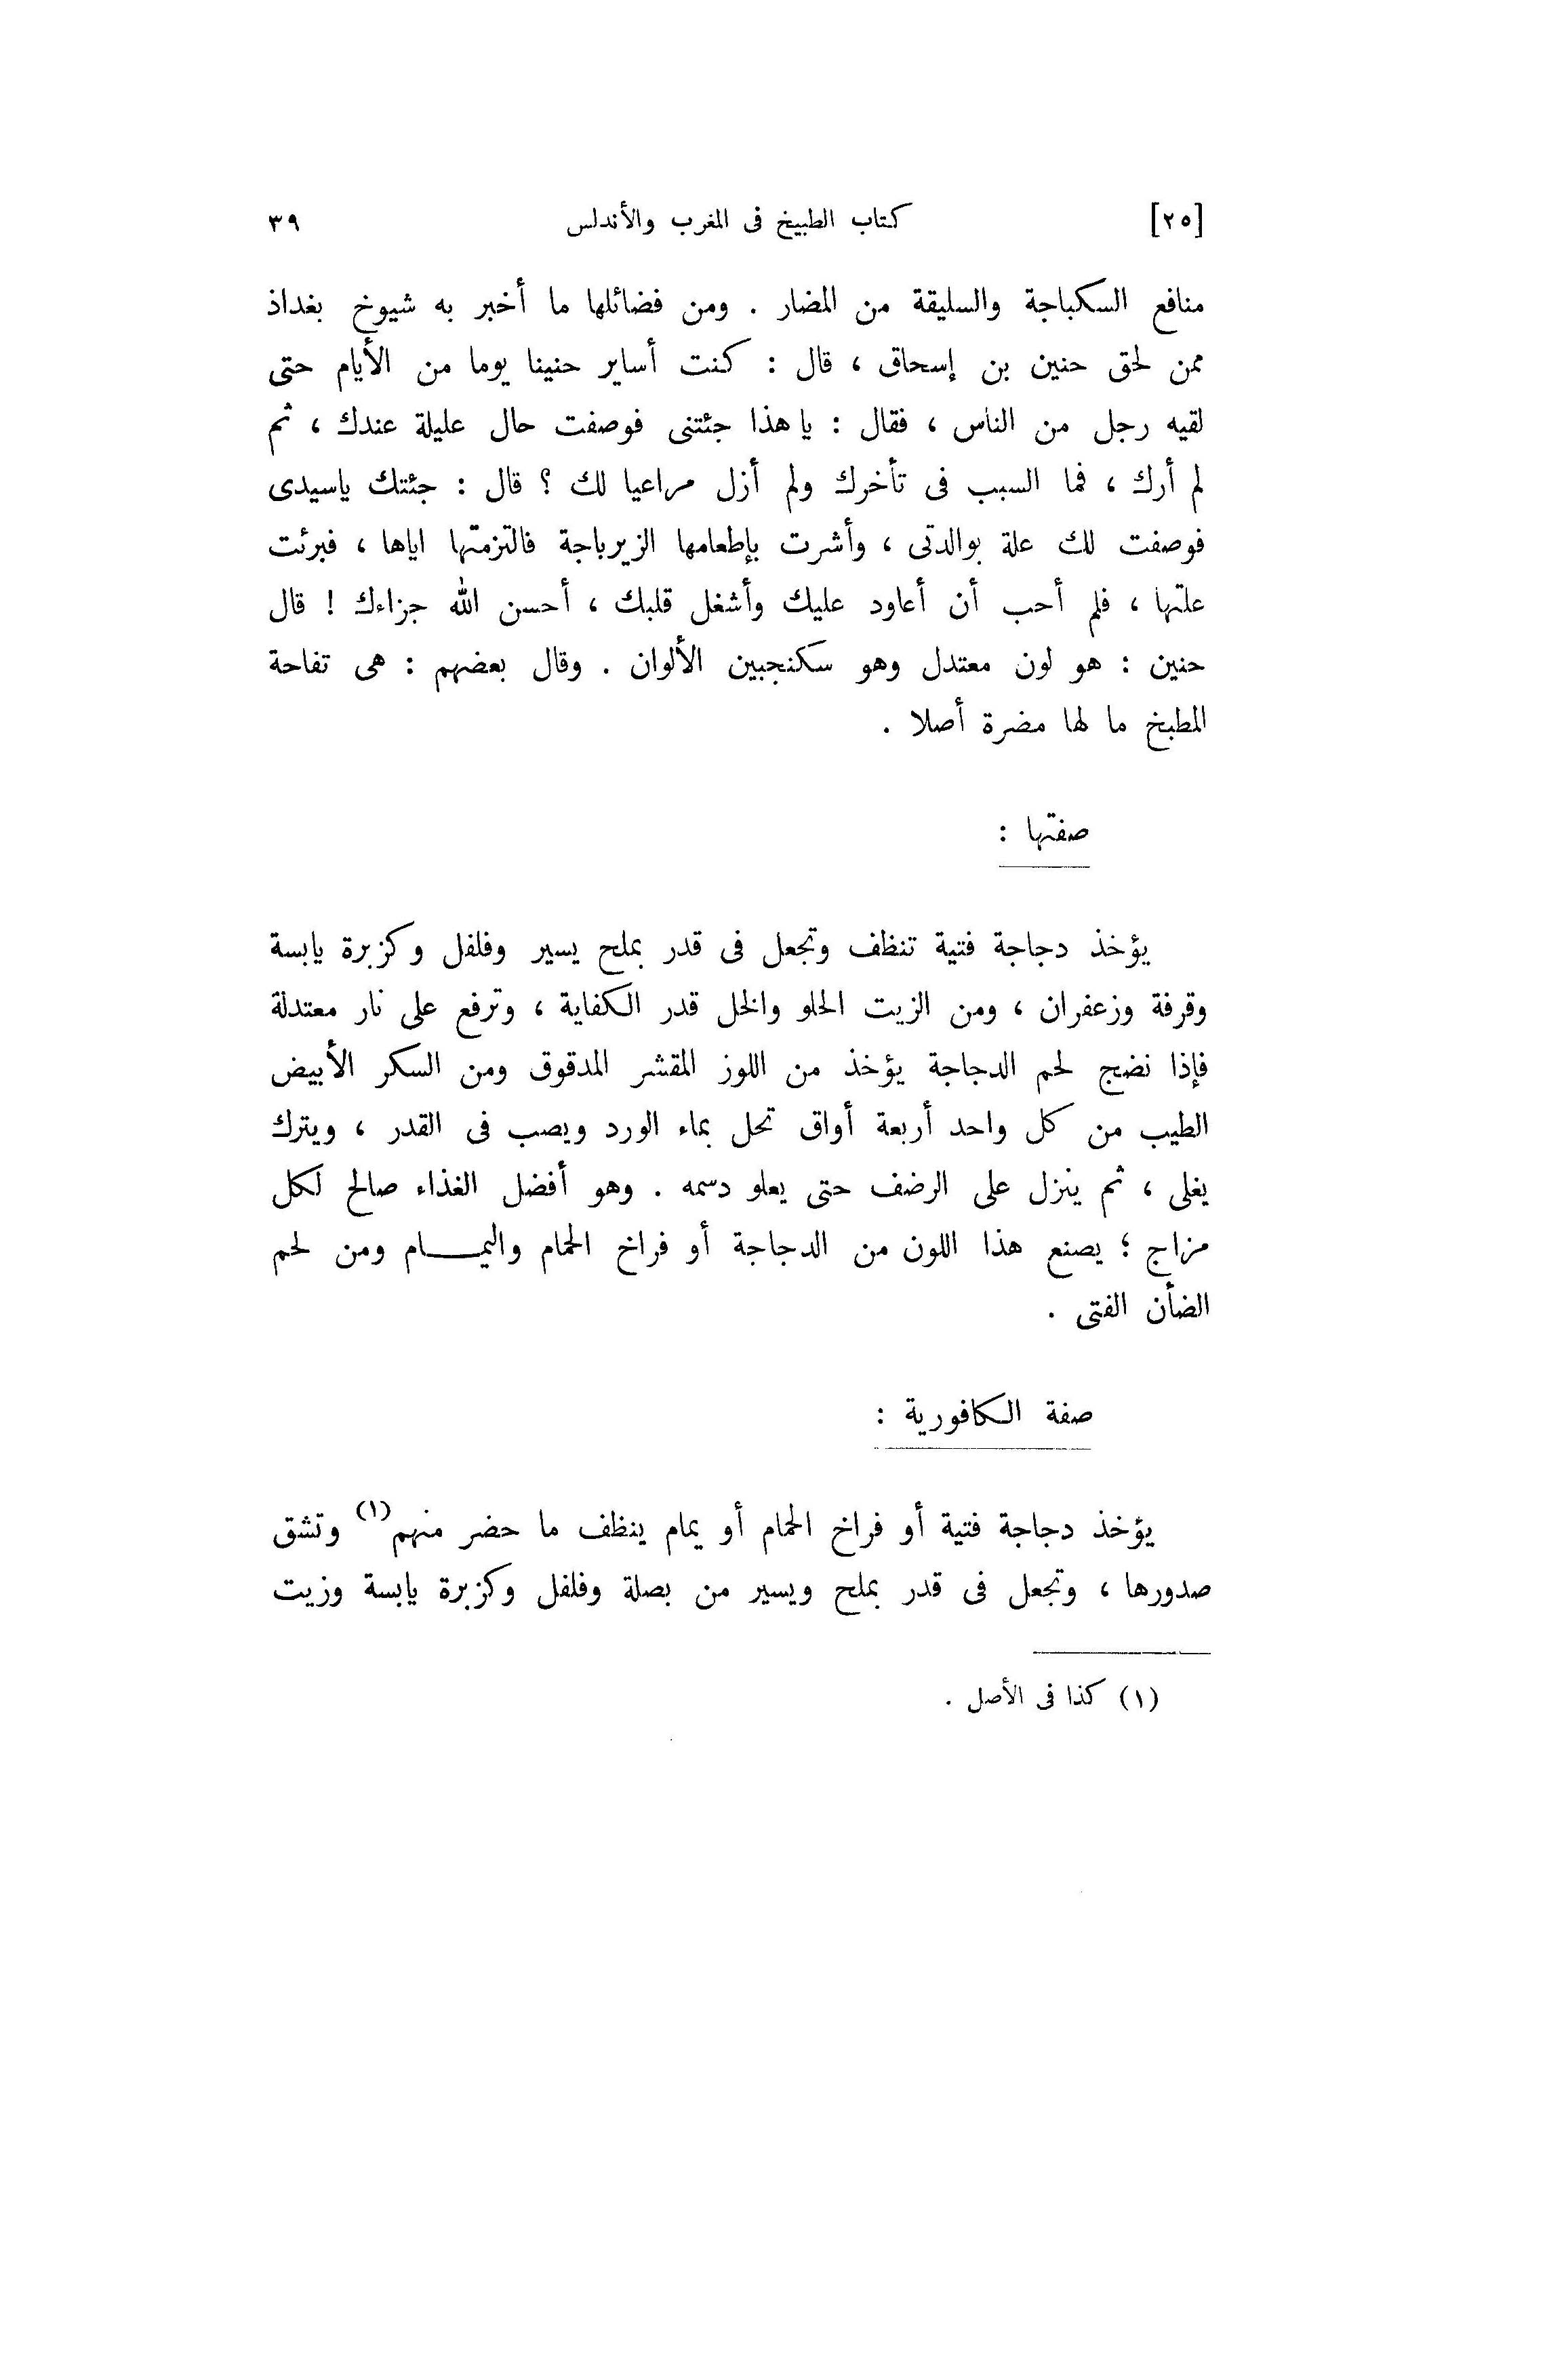 [٢٥] كتاب الطبيخ فى المغرب والأندلس ٣٩
منافع السكباجة والسليقة من المضار . ومن فضائلها ما أخبر به شيوخ بغداذ
ممن لحق حنين بن إسحاق ، قال : كنت أساير حنينا يوما من الأيام حتى
لقيه رجل من الناس ، فقال : يا هذا جئتنى فوصفت حال عليلة عندك ، ثم
لم أرك ، فما السبب فى تأخرك ولم أزل مراعيا لك ؟ قال : جئتك ياسيدى
فوصفت لك علة بوالدتى ، وأشرت بإطعامها الزيرباجة فالتزمتها اياها ، فبرئت
علتها ، فلم أحب أن أعاود عليك وأشغل قلبك ، أحسن الله جزاءك ! قال
حنين : هو لون معتدل وهو سكنجبين الألوان . وقال بعضهم : هى تفاحة
المطبخ ما لها مضرة أصلا .
صفتها :
يؤخذ دجاجة فتية تنظف وتجعل فى قدر بملح يسير وفلفل وكزبرة يابسة
وقرفة وزعفران ، ومن الزيت الحلو والخل قدر الكفاية ، وترفع على نار معتدلة
فإذا نضج لحم الدجاجة يؤخذ من اللوز المقشر المدقوق ومن السكر الأبيض
الطيب من كل واحد أربعة أواق تحل بماء الورد ويصب فى القدر ، ويترك
يغلى ، ثم ينزل على الرضف حتى يعلو دسمه . وهو أفضل الغذاء صالح لكل
مزاج ؛ يصنع هذا اللون من الدجاجة أو فراخ الحمام واليمـــام ومن لحم
الضأن الفتى .
صفة الكافورية :
يؤخذ دجاجة فتية أو فراخ الحمام أو يمام ينظف ما حضر منهم(١) وتشق
صدورها ، وتجعل فى قدر بملح ويسير من بصلة وفلفل وكزبرة يابسة وزيت
(١) كذا فى الأصل .